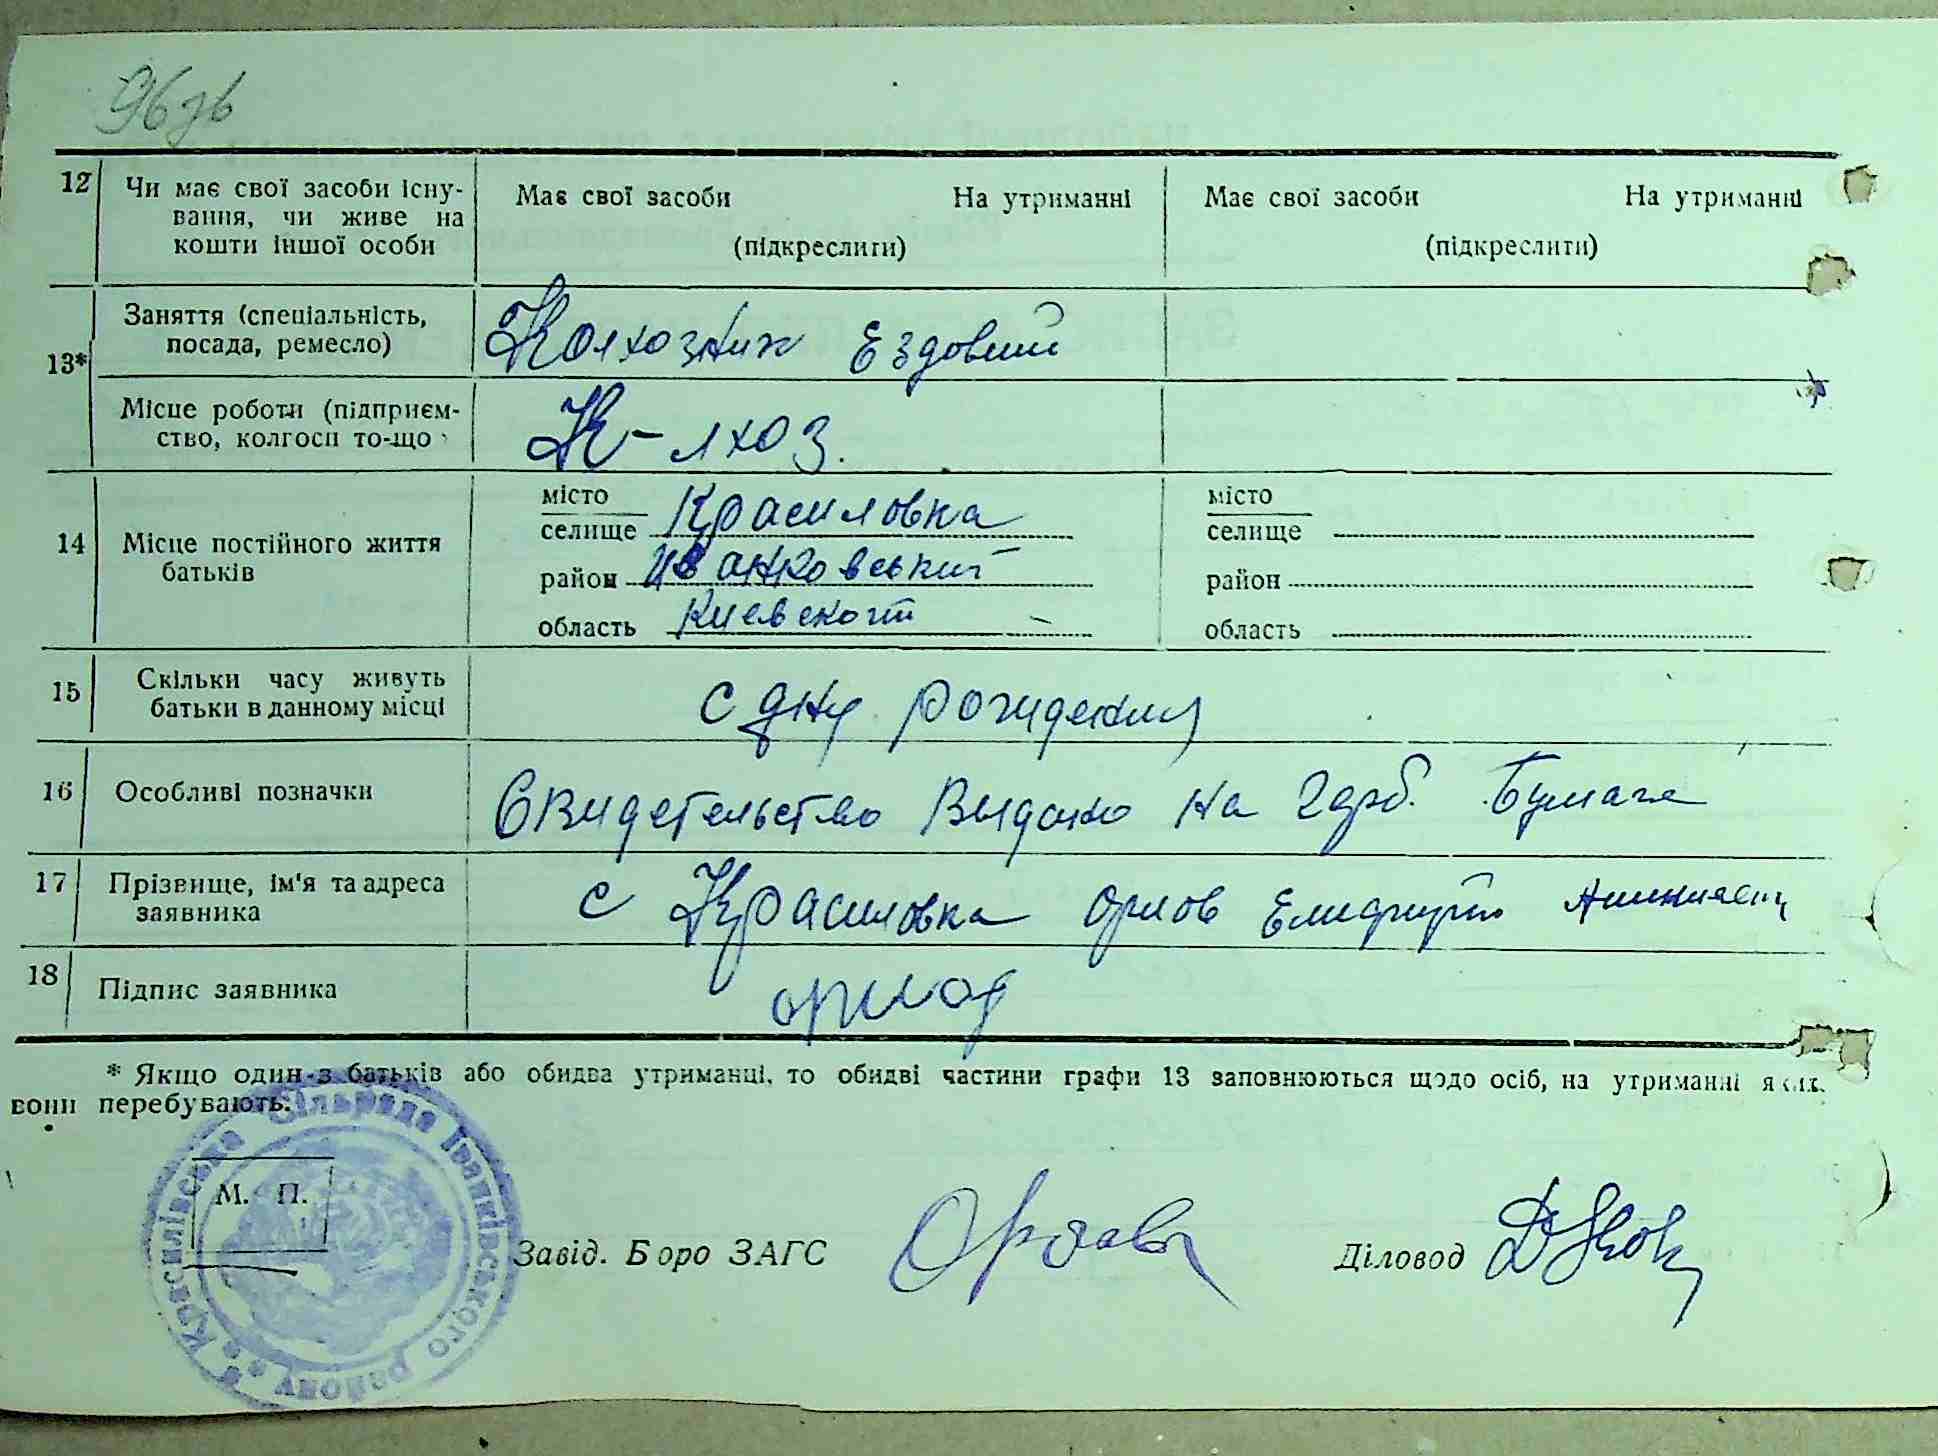 96 зв
12 Чи має свої засоби існу-
вання, чи живе на
кошти іншої особи
Має свої засоби На утриманні
(підкреслити)
Має свої засоби На утриманні
(підкреслити)
13* Заняття (спеціальність,
посада, ремесло)
Колхозник Ездовий
Місце роботи (підприєм-
ство, колгосп то-що
К-лхоз.
14 Місце постійного життя
батьків
місто
селище Красиловка
район Иванковський
область
місто
селище
район
область
15 Скільки часу живуть
батьки в данному місці
с дну рождения
16 Особливі позначки
Свидетельство Выдано на 2 грб. Бумаге
17 Прізвище, ім'я та адреса
заявника
с Красиловка Орлов
18 Підпис заявника
орлов
* Якщо один з батьків або обидва утриманці, то обидві частини графи 13 заповнюються щодо осіб, на утриманні яких
вони перебувають.
Красилівська Сільрада Іванківського району
М. П.
Завід. Боро ЗАГС
Діловод